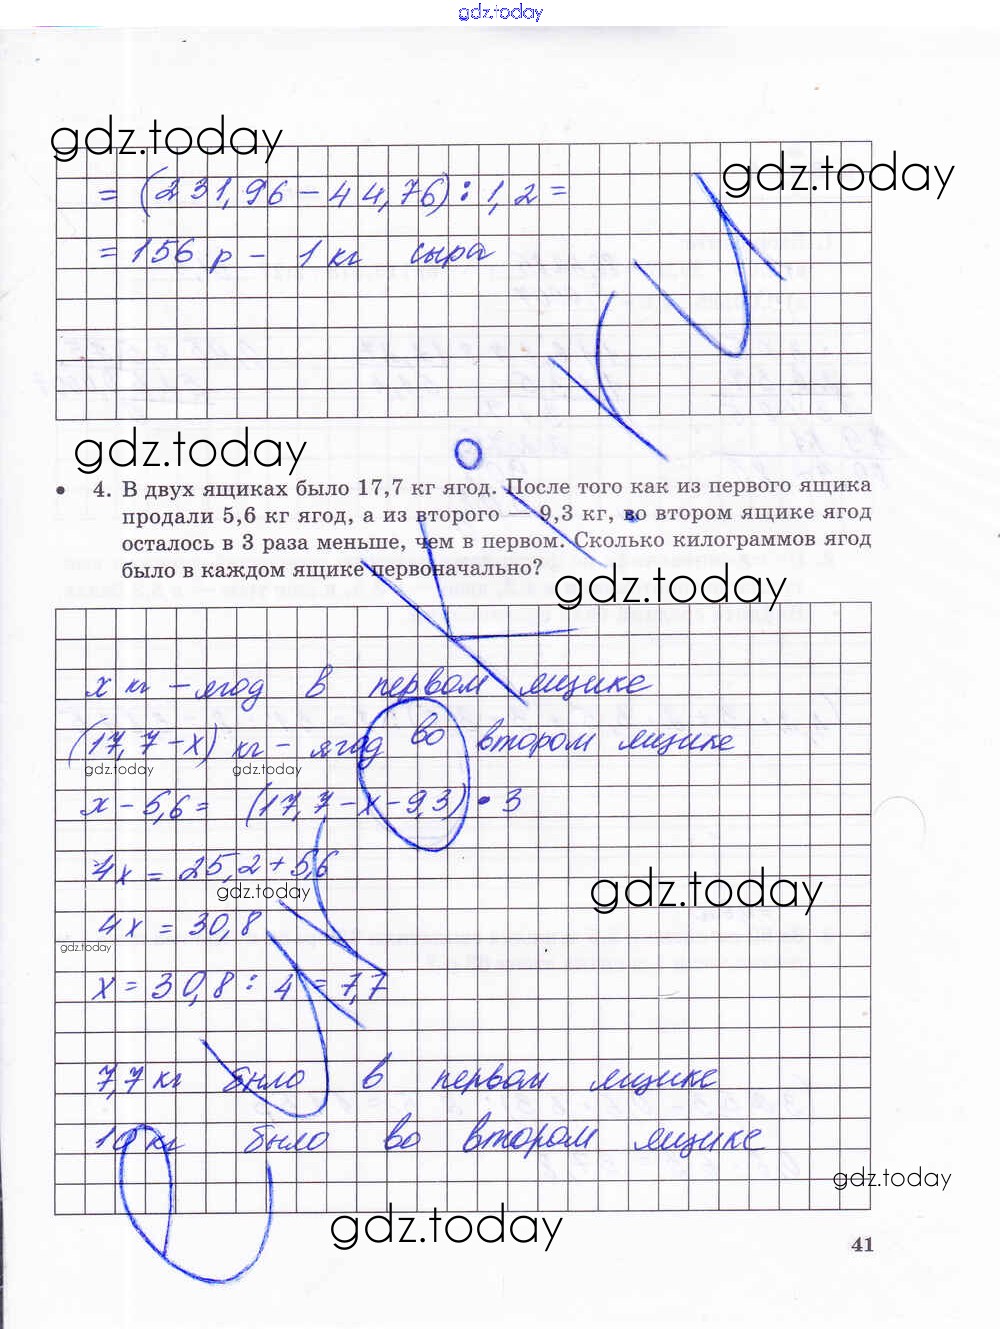 gdz.today
gdz.today
gdz.today
= (231,96 - 44,76) : 1,2 =
= 156 р - 1 кг сыра
gdz.today
4. В двух ящиках было 17,7 кг ягод. После того как из первого ящика
продали 5,6 кг ягод, а из второго — 9,3 кг, во втором ящике ягод
осталось в 3 раза меньше, чем в первом. Сколько килограммов ягод
было в каждом ящике первоначально?
gdz.today
x кг - ягод в первом ящике
(17,7 - x) кг - ягод во втором ящике
gdz.today gdz.today
x - 5,6 = (17,7 - x - 9,3) • 3
4x = 25,2 + 5,6
gdz.today gdz.today
4x = 30,8
gdz.today
x = 30,8 : 4 = 7,7
7,7 кг было в первом ящике
10 кг было во втором ящике
gdz.today
gdz.today
41